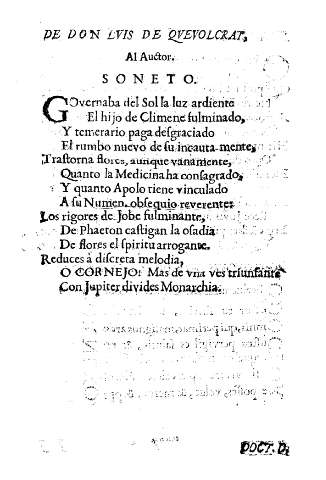 DE DON LVIS DE QVEVOLCRAT,
Al Auctor.
SONETO.
GOvernaba del Sol la luz ardiente
El hijo de Climene fulminado,
Y temerario paga desgraciado
El rumbo nuevo de su incauta mente,
Trastorna flores, aunque vanamente,
Quanto la Medicina ha consagrado,
Y quanto Apolo tiene vinculado
A su Numen obsequio reverente:
Los rigores de Jobe fulminante,
De Phaeton castigan la osadia
De flores el spiritu arrogante.
Reduces à discreta melodia,
O CORNEJO! Mas de vna ves triunfante
Con Jupiter divides Monarchia.
DOCT. D.